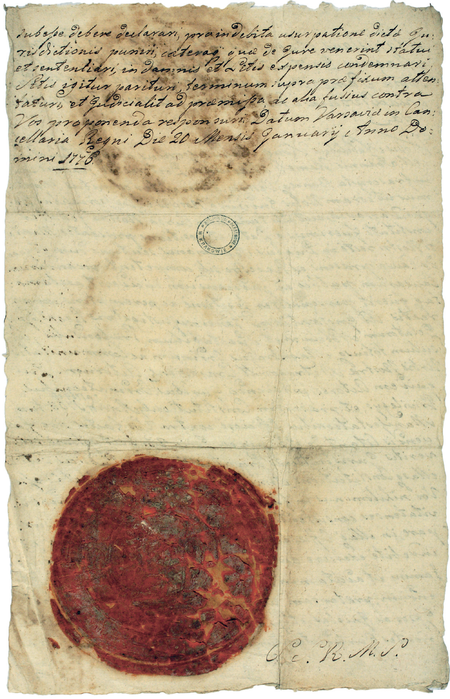 subesse debere declarari, pro indebita usurpatione dictæ Ju-
risdictionis puniri, cæteraq, quæ de jure venerint statui
et sententiari, in damnis et a litis expensis condemnari.
Sitis igitur parituri, terminum supra præfixum atten-
taturi, et judicialit ad præmissa de alia fusius contra
Vos proponenda responsuri. Datum Varsaviæ in Can-
cellaria Regni Die 20 Mensis January, Anno Do-
mini 1776
R. M. S.